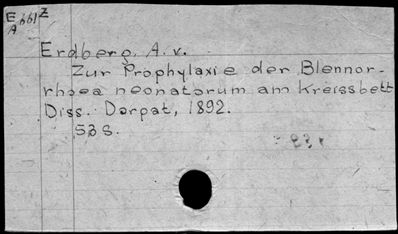 E 661 Z
A
Erdberg, A. v.
Zur Prophylaxie der Blennor-
rhoea neonatorum am Kreissbett
Diss. Dorpat, 1892.
53 S.